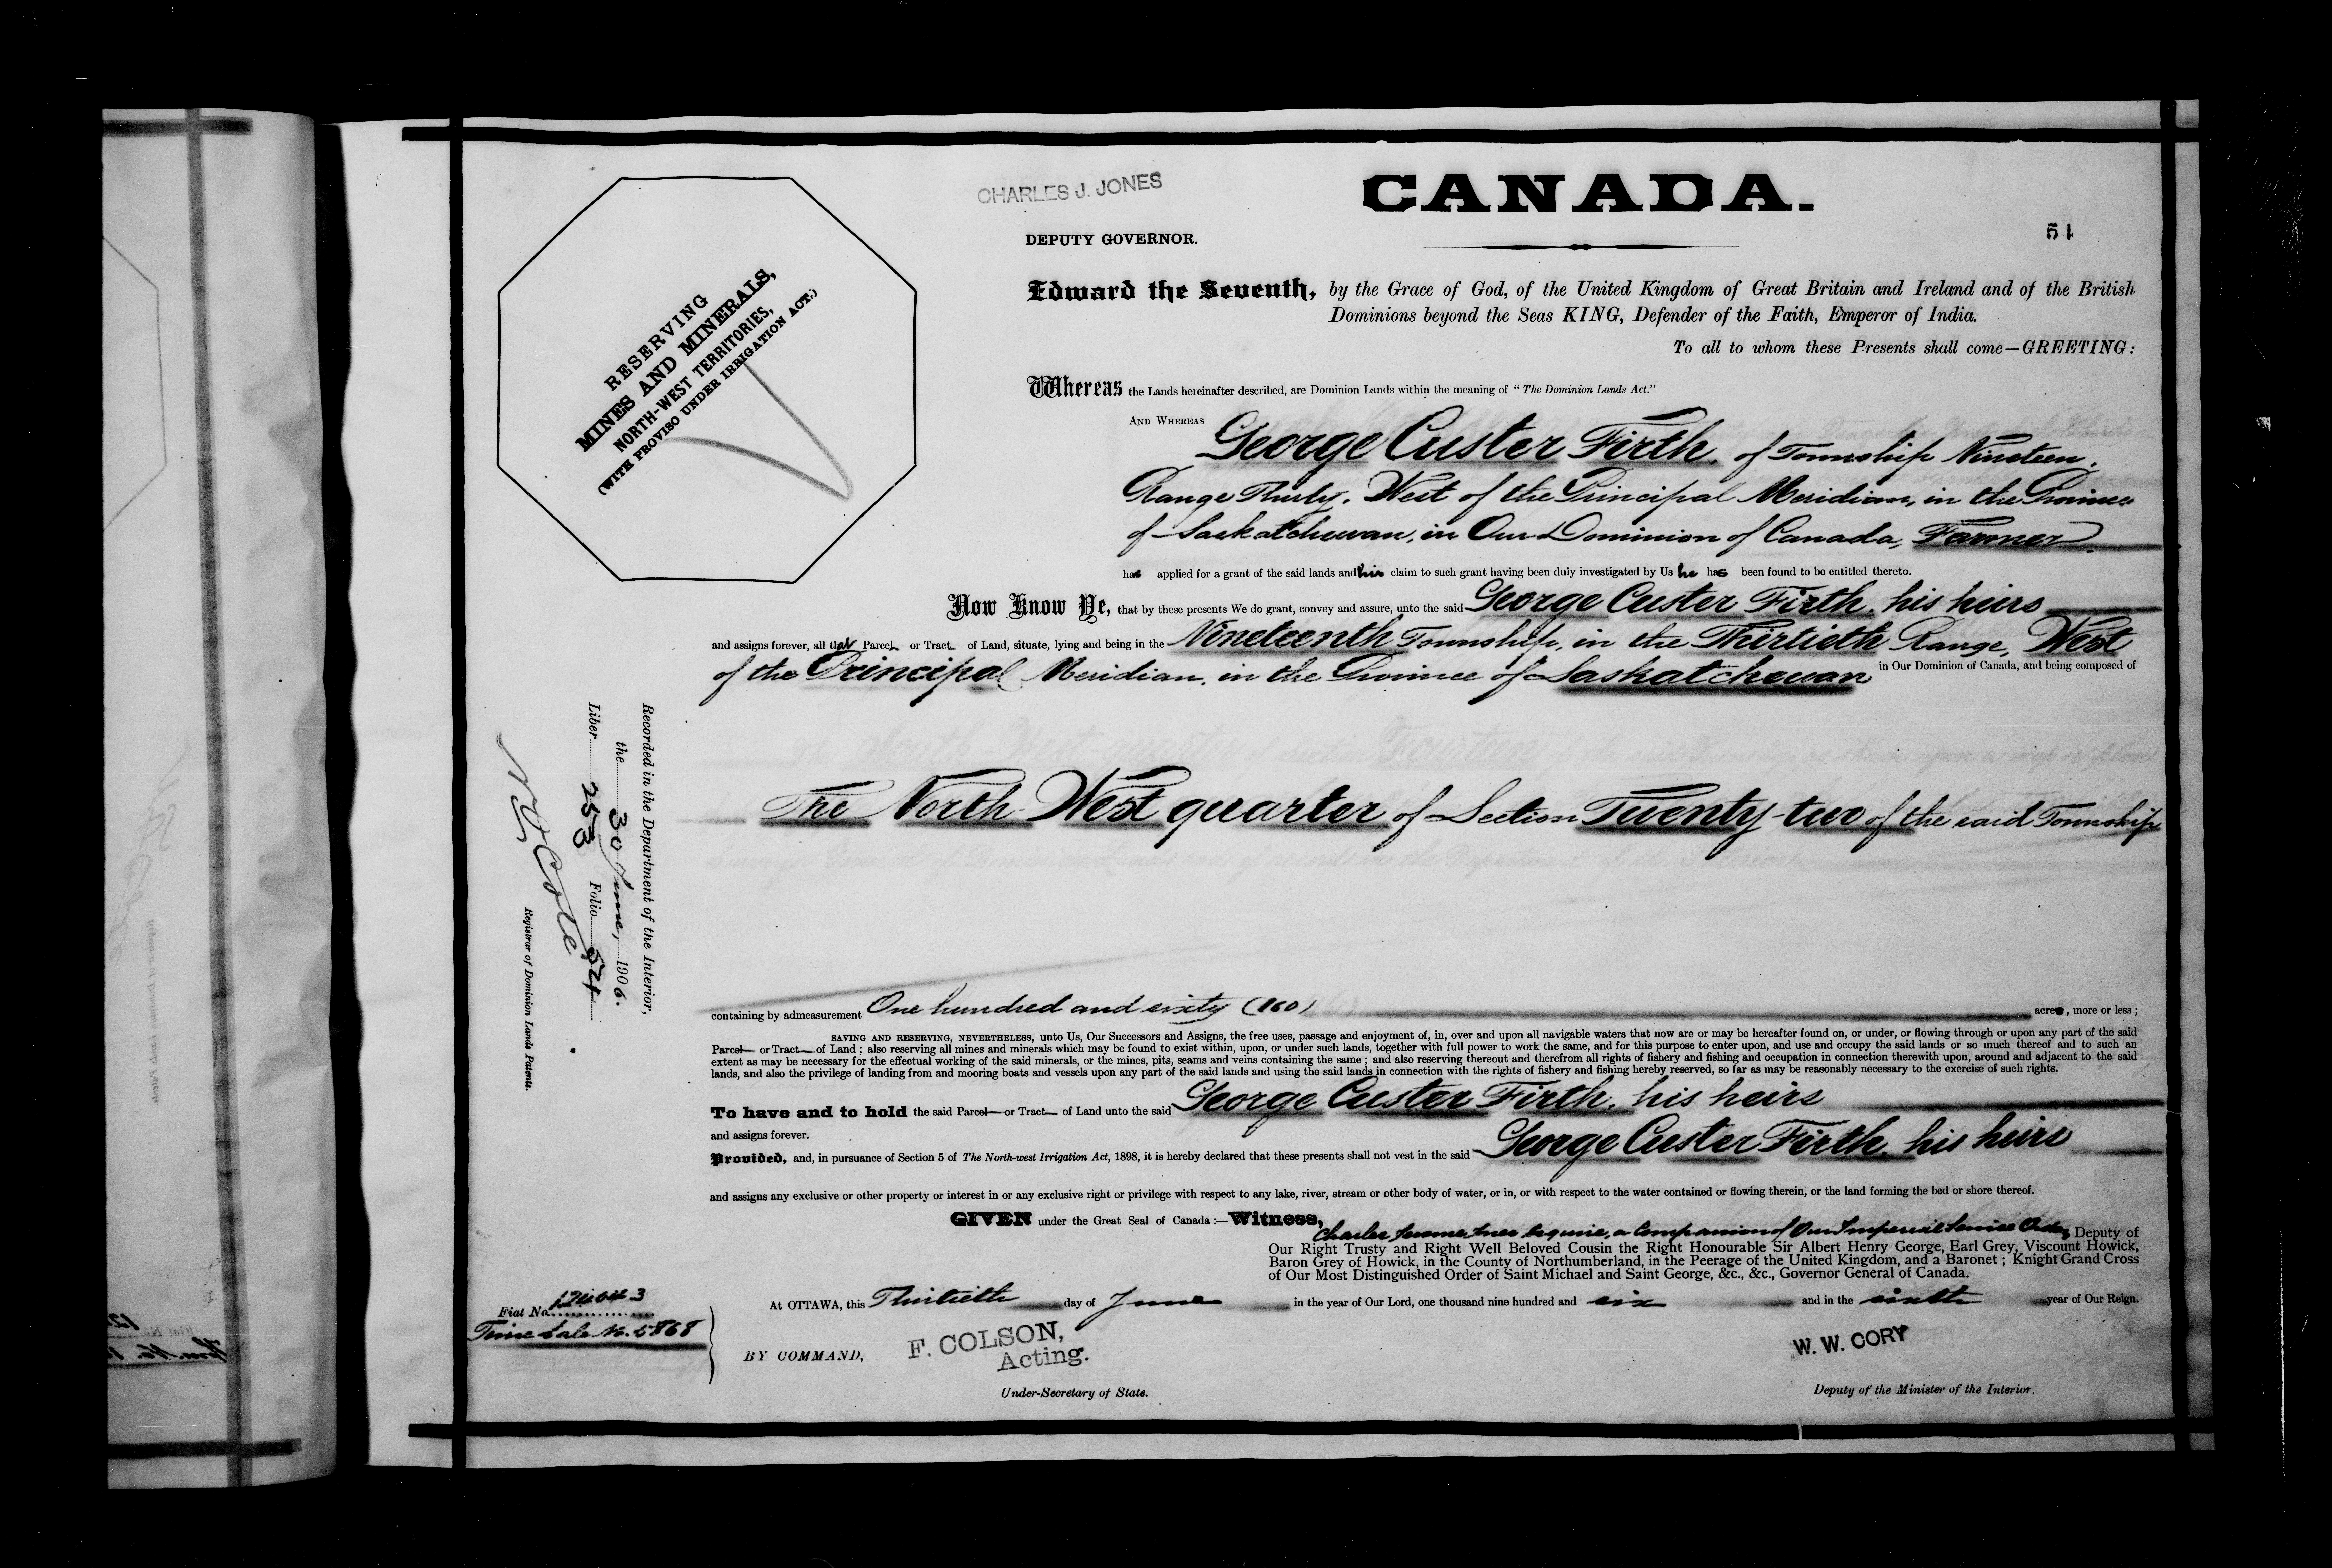 CHARLES J. JONES
DEPUTY GOVERNOR.
CANADA.
51
RESERVING
MINES AND MINERALS,
NORTH-WEST TERRITORIES,
(WITH PROVISO UNDER IRRIGATION ACT.)
Edward the Seventh, by the Grace of God, of the United Kingdom of Great Britain and Ireland and of the British
Dominions beyond the Seas KING, Defender of the Faith, Emperor of India.
To all to whom these Presents shall come—GREETING:
Whereas the Lands hereinafter described, are Dominion Lands within the meaning of "The Dominion Lands Act."
AND WHEREAS George Custer Firth, of Township Nineteen,
Range Thirty, West of the Principal Meridian, in the Province
of Saskatchewan, in Our Dominion of Canada, Farmer,
has applied for a grant of the said lands and his claim to such grant having been duly investigated by Us he has been found to be entitled thereto.
Now Know Ye, that by these presents We do grant, convey and assure, unto the said George Custer Firth, his heirs
and assigns forever, all that Parcel or Tract of Land, situate, lying and being in the Nineteenth Township, in the Thirtieth Range, West
of the Principal Meridian, in the Province of Saskatchewan in Our Dominion of Canada, and being composed of
The North West quarter of Section Twenty-two of the said Township
containing by admeasurement One hundred and sixty (160) acres, more or less;
SAVING AND RESERVING, NEVERTHELESS, unto Us, Our Successors and Assigns, the free uses, passage and enjoyment of, in, over and upon all navigable waters that now are or may be hereafter found on, or under, or flowing through or upon any part of the said
Parcel or Tract of Land; also reserving all mines and minerals which may be found to exist within, upon, or under such lands, together with full power to work the same, and for this purpose to enter upon, and use and occupy the said lands or so much thereof and to such an
extent as may be necessary for the effectual working of the said minerals, or the mines, pits, seams and veins containing the same; and also reserving thereout and therefrom all rights of fishery and fishing and occupation in connection therewith upon, around and adjacent to the said
lands, and also the privilege of landing from and mooring boats and vessels upon any part of the said lands and using the said lands in connection with the rights of fishery and fishing hereby reserved, so far as may be reasonably necessary to the exercise of such rights.
To have and to hold the said Parcel or Tract of Land unto the said George Custer Firth, his heirs
and assigns forever.
Provided, and, in pursuance of Section 5 of The North-west Irrigation Act, 1898, it is hereby declared that these presents shall not vest in the said George Custer Firth, his heirs
and assigns any exclusive or other property or interest in or any exclusive right or privilege with respect to any lake, river, stream or other body of water, or in, or with respect to the water contained or flowing therein, or the land forming the bed or shore thereof.
GIVEN under the Great Seal of Canada:—Witness,
Charles Jerome Jones Esquire, a Companion of Our Imperial Service Order, Deputy of
Our Right Trusty and Right Well Beloved Cousin the Right Honourable Sir Albert Henry George, Earl Grey, Viscount Howick,
Baron Grey of Howick, in the County of Northumberland, in the Peerage of the United Kingdom, and a Baronet; Knight Grand Cross
of Our Most Distinguished Order of Saint Michael and Saint George, &c., &c., Governor General of Canada.
At OTTAWA, this Thirtieth day of June in the year of Our Lord, one thousand nine hundred and six and in the sixth year of Our Reign.
Fiat No.
Time Sale No. 5868
BY COMMAND,
F. COLSON,
Acting.
Under-Secretary of State.
W. W. CORY
Deputy of the Minister of the Interior.
Recorded in the Department of the Interior,
the 30 June, 1906.
Liber 253 Folio 51
Registrar of Dominion Lands Patents.